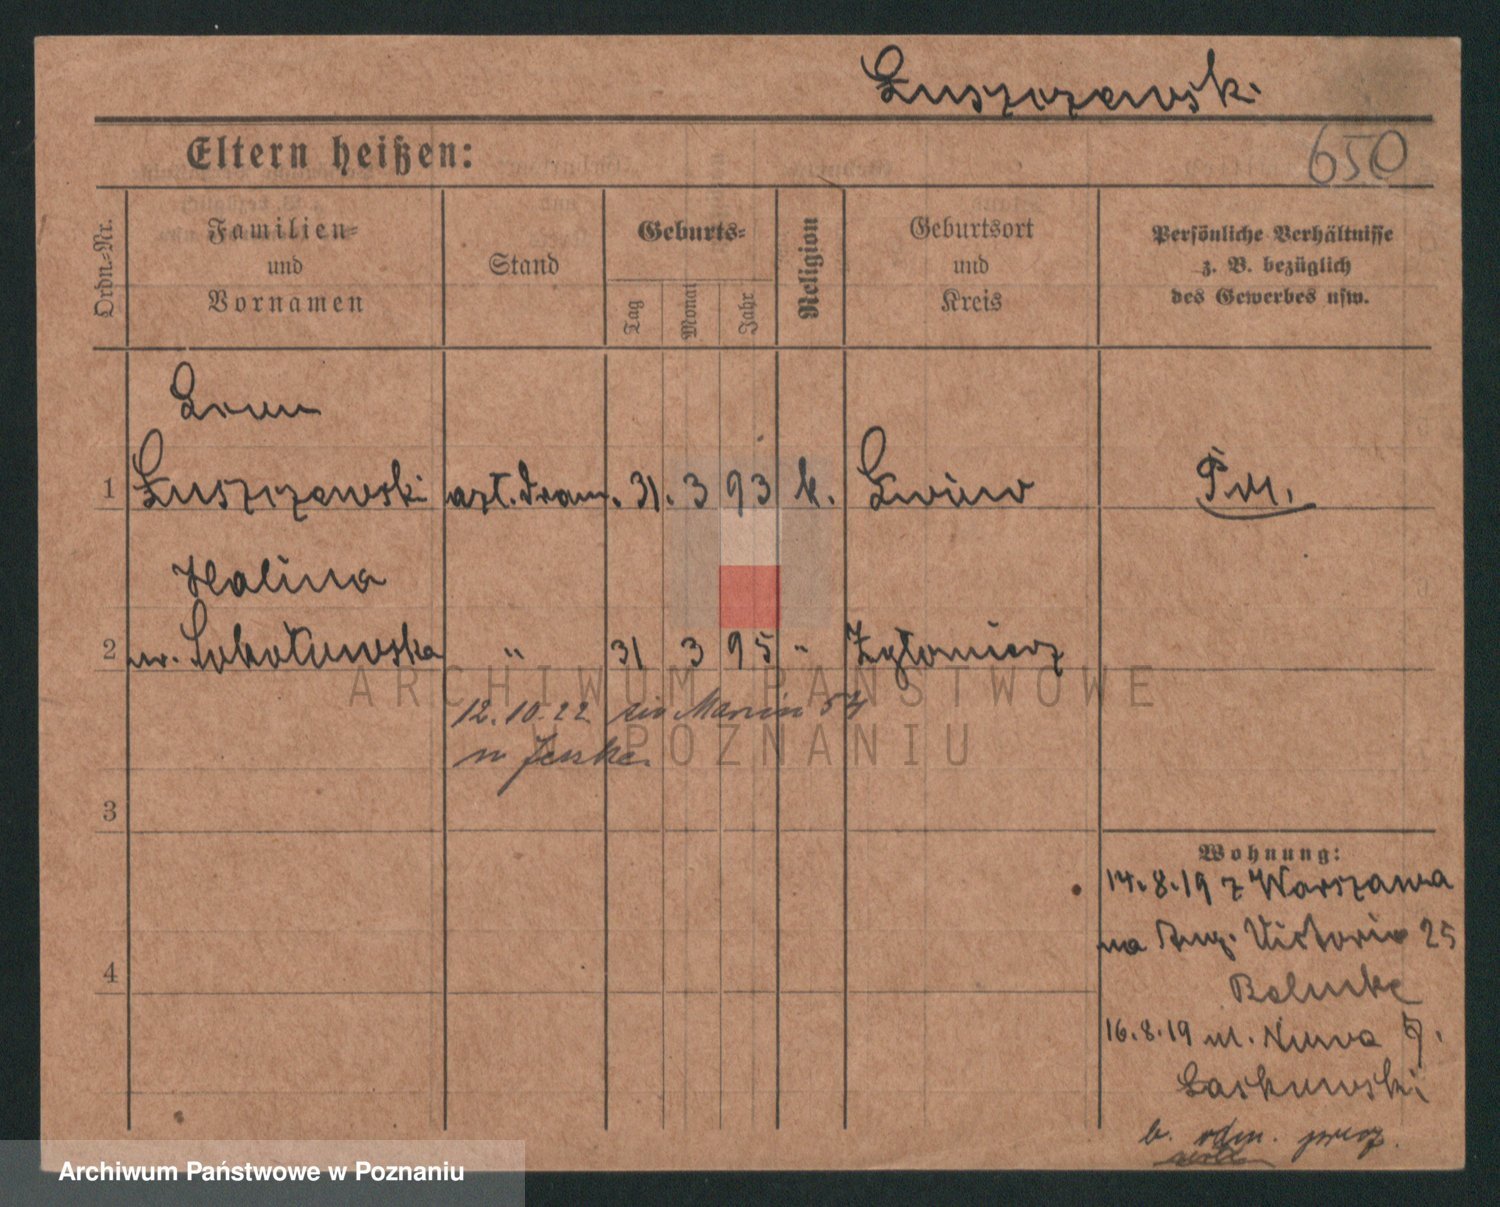 Łuszczewski
650
Eltern heißen:
Ordn.=Nr.
Familien=
und
Vornamen
Stand
Geburts=
Tag
Monat
Jahr
Religion
Geburtsort
und
Kreis
Persönliche Verhältnisse
z. B. bezüglich
des Gewerbes usw.
1
Łuszczewski art. dram. 31. 3 93 k. Lwów
Halina
2
ur. Sokołowska " 31 3 95 "
ARCHIWUM PAŃSTWOWE
W POZNANIU
12.10.22 Marcin 54
3
Wohnung:
14.8.19 z Warszawa
na Aug. Victoria 25
4
16.8.19 ul. Nowa
Laskowski
Archiwum Państwowe w Poznaniu